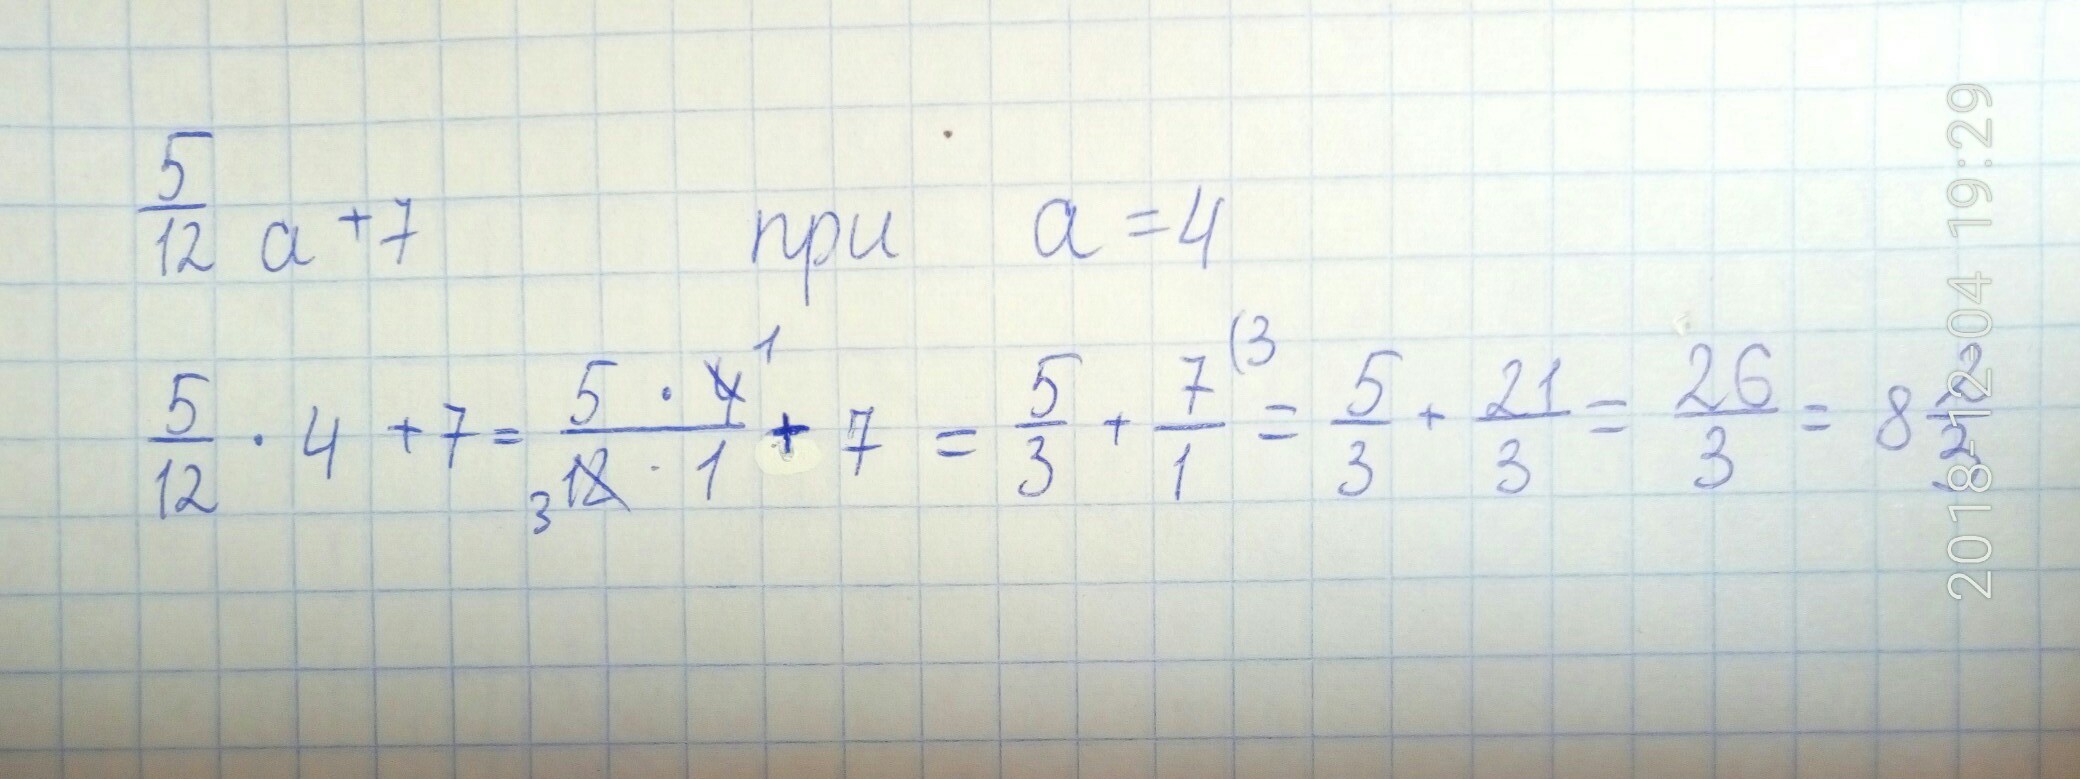 5/12 a + 7 при a = 4
5/12 · 4 + 7 = 5 · 4 1 / 3 12 · 1 + 7 = 5/3 + 7/1 (3 = 5/3 + 21/3 = 26/3 = 8 2/3
2018-12-04 19:29